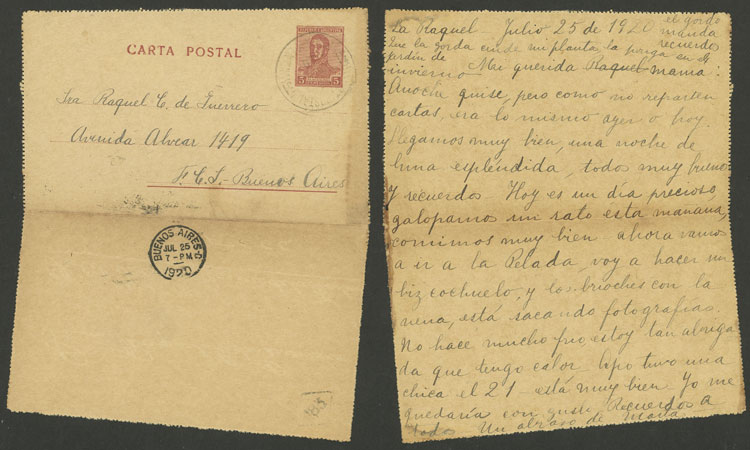 CARTA POSTAL
5 5
Sra Raquel C. de Guerrero
Avenida Alvear 1419
F.C.S. - Buenos Aires
BUENOS AIRES
JUL 25
7 - PM
1920
La Raquel - Julio 25 de 1920
el gordo
manda
recuerdo
Que la gorda cuide mi planta, la ponga en el
jardín de
invierno - Mi querida Raquel mama:
Anoche quise, pero como no reparten
cartas, era lo mismo ayer o hoy.
Llegamos muy bien, una noche de
luna espléndida, todos muy buenos
y recuerdos. Hoy es un día precioso
galopamos un rato esta mañana,
comimos muy bien ahora vamos
a ir a la Pelada, voy a hacer un
bizcochuelo, y los brioches con la
nena, está sacando fotografias
No hace mucho frio, estoy tan abriga
da que tengo calor. tuvo una
chica el 21 - está muy bien Yo me
quedaría con gusto. Recuerdos a
todos Un abrazo de María